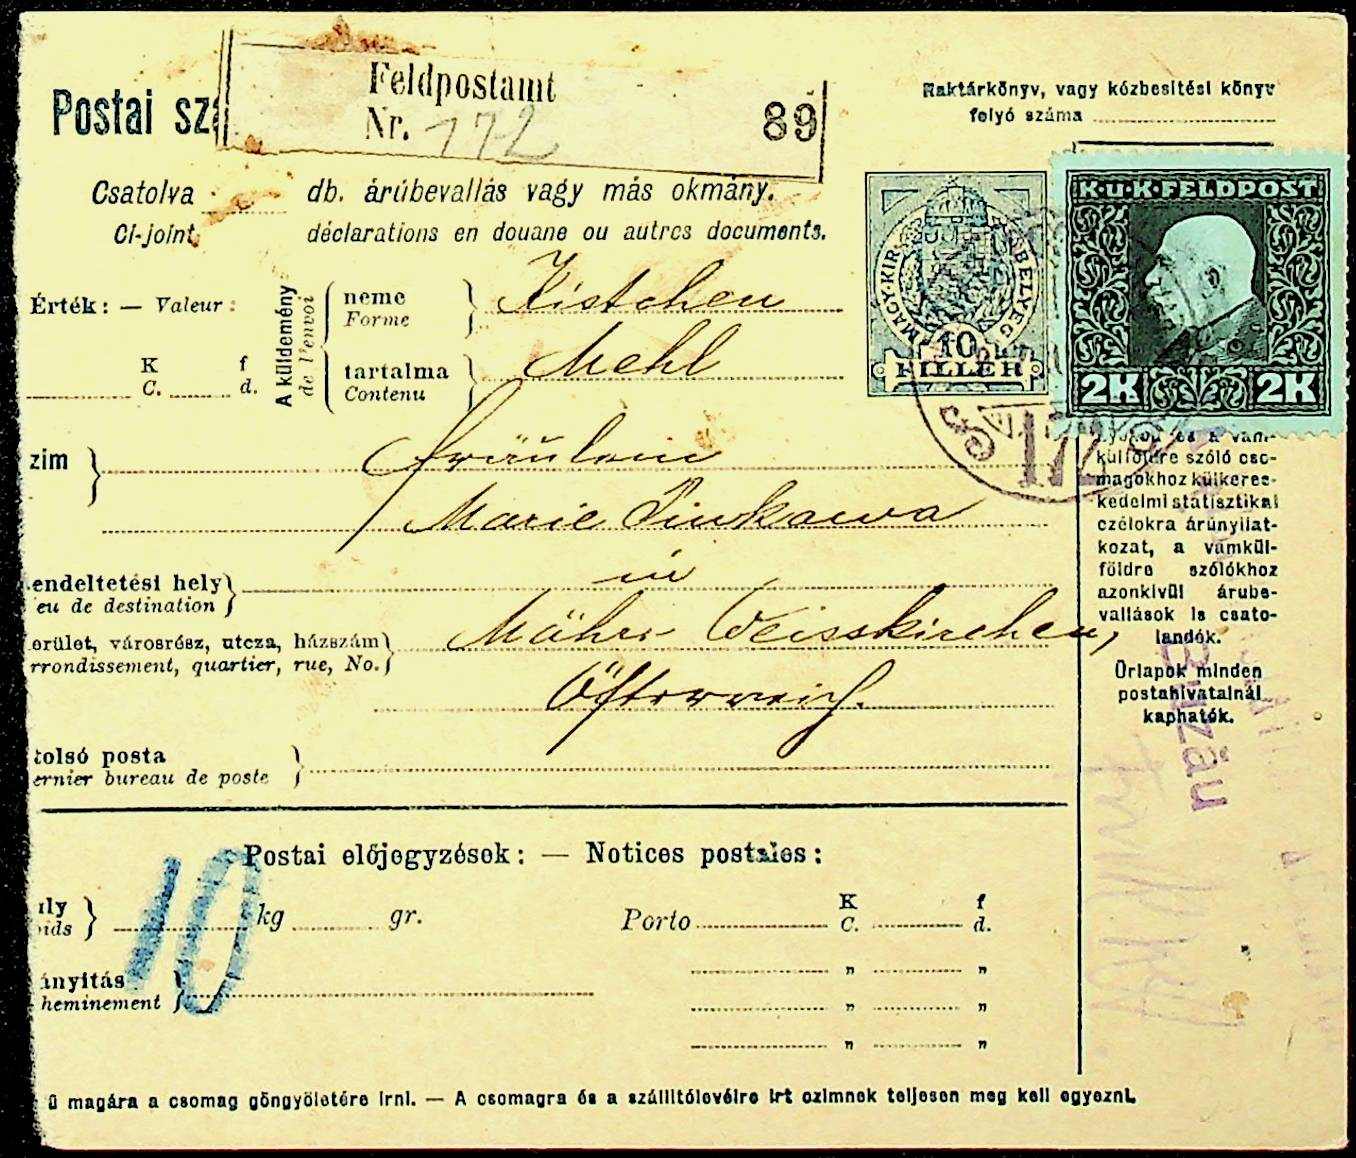 Feldpostamt
Nr. 172
89
Raktárkönyv, vagy kézbesitési könyv
folyó száma
Postai szá
Csatolva db. árúbevallás vagy más okmány.
Ci-joint, déclarations en douane ou autres documents.
MAGY·KIR BÉLYEG
10
FILLÉR
K·u·K·FELDPOST
2K 2K
Érték: — Valeur:
K f
C. d.
A küldemény
de l'envoi
neme
Forme
Kistchen
tartalma
Contenu
Mehl
172
zim
Fräulein
Marie Pinkawa
endeltetési hely
eu de destination
in
erület, városrész, utcza, házszám
rrondissement, quartier, rue, No.
Mähr. Weisskirchen,
Österreich.
tolsó posta
ernier bureau de poste
és a vám-
külföldre szóló cso-
magokhoz külkeres-
kedelmi statisztikai
czélokra árúnyilat-
kozat, a vámkül-
földre szólókhoz
azonkivül árube-
vallások is csato-
landók.
Űrlapok minden
postahivatalnál
kaphatók.
Buzău
Postai előjegyzések: — Notices postales:
10
uly
oids
kg gr.
Porto
K f
C. d.
" "
" "
" "
ányitás
heminement
ű magára a csomag göngyöletére irni. — A csomagra és a szállitólevélre irt czimnek teljesen meg kell egyezni.